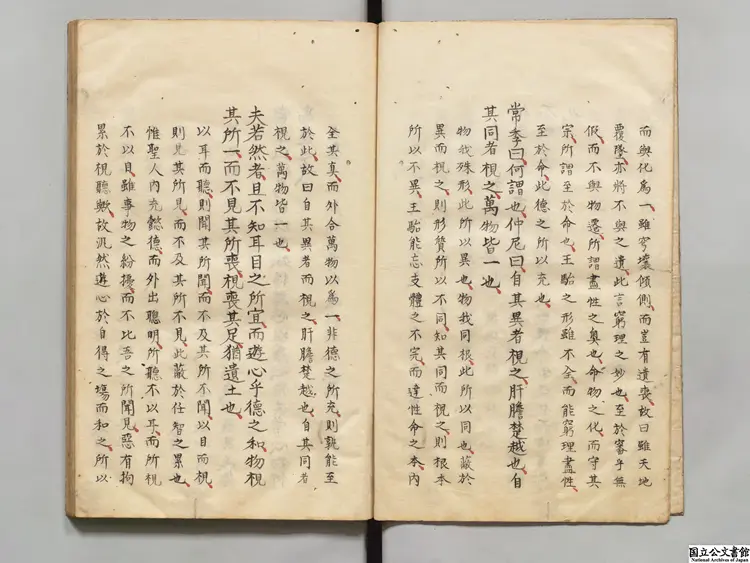 而與化爲一雖穹壤傾側而豈有遺喪故曰雖天地
覆墜亦將不與之遺此言窮理之妙也至於審乎無
假而不與物遷所謂盡性之奥也命物之化而守其
宗所謂至於命也王駘之形雖不全而能窮理盡性
至於命此德之所以充也
常季曰何謂也仲尼曰自其異者視之肝膽楚越也自
其同者視之萬物皆一也
物我殊形此所以異也物我同根此所以同也蔽於
異而視之則形質所以不同知其同而視之則根本
所以不異王駘能忘支體之不完而達性命之本内
全其真而外合萬物以爲一非德之所充則孰能至
於此故曰自其異者而視之肝膽楚越也自其同者
視之萬物皆一也
夫若然者且不知耳目之所宜而遊心乎德之和物視
其所一而不見其所喪視喪其足猶遺土也
以耳而聽則聞其所聞而不及其所不聞以目而視
則見其所見而不及其所不見此蔽於任智之累也
惟聖人内充懿德而外出聰明所聽不以耳而所視
不以目雖事物之紛擾而不比吾之所聞見惡有拘
累於視聽歟故汎然遊心於自得之塲而和之所以
国立公文書館
National Archives of Japan